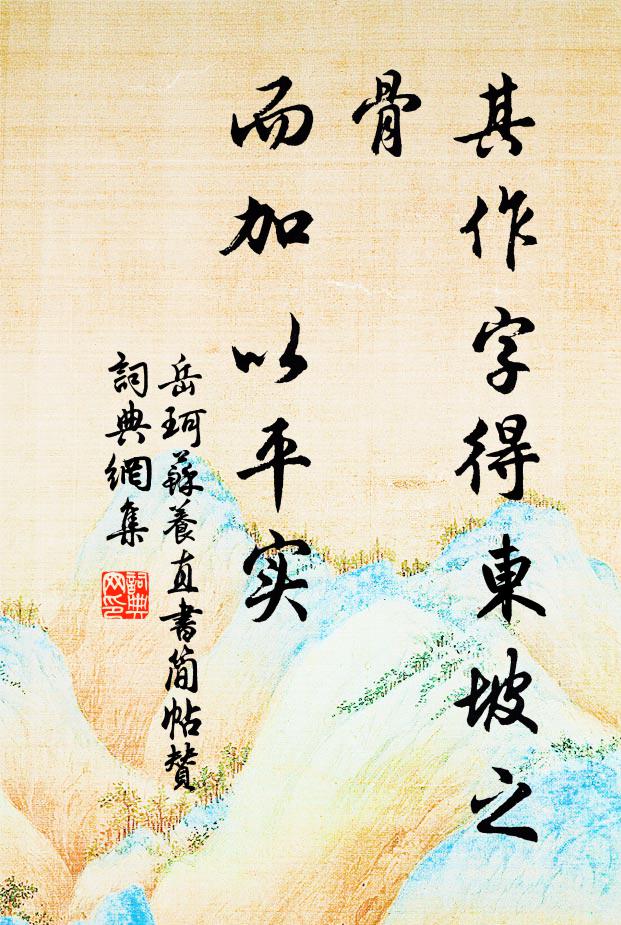 其作字得東坡之
骨
而加以平实
岳珂蘇養直書简帖贊
詞典網集
詞典
网印